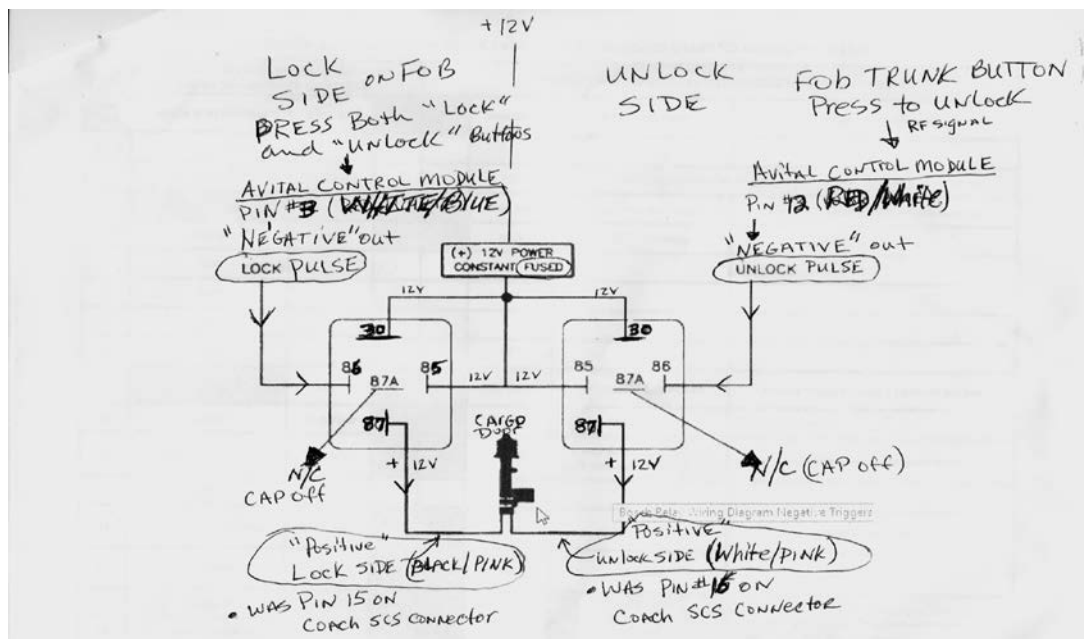 +12V
LOCK ON FOB
SIDE
PRESS Both "Lock"
and "UNLOCK" Buttons
AVITAL CONTROL MODULE
PIN #3 (WHITE/BLUE)
"NEGATIVE" out
LOCK PULSE
UNLOCK
SIDE
FOB TRUNK BUTTON
Press to UNLOCK
RF SIGNAL
AVITAL CONTROL MODULE
PIN #12 (RED/White)
"NEGATIVE" out
UNLOCK PULSE
(+) 12V POWER
CONSTANT FUSED
12V 12V
30 30
86 85 85 86
87A 12V 12V 87A
87 87
CARGO
DOOR
+ 12V + 12V
N/C
CAP OFF
N/C (CAP OFF)
Bosch Relay Wiring Diagram Negative Triggers
"Positive"
LOCK SIDE (BLACK/PINK)
• WAS PIN 15 ON
COACH SCS CONNECTOR
"Positive"
UNLOCK SIDE (White/PINK)
• WAS PIN #16 ON
COACH SCS CONNECTOR